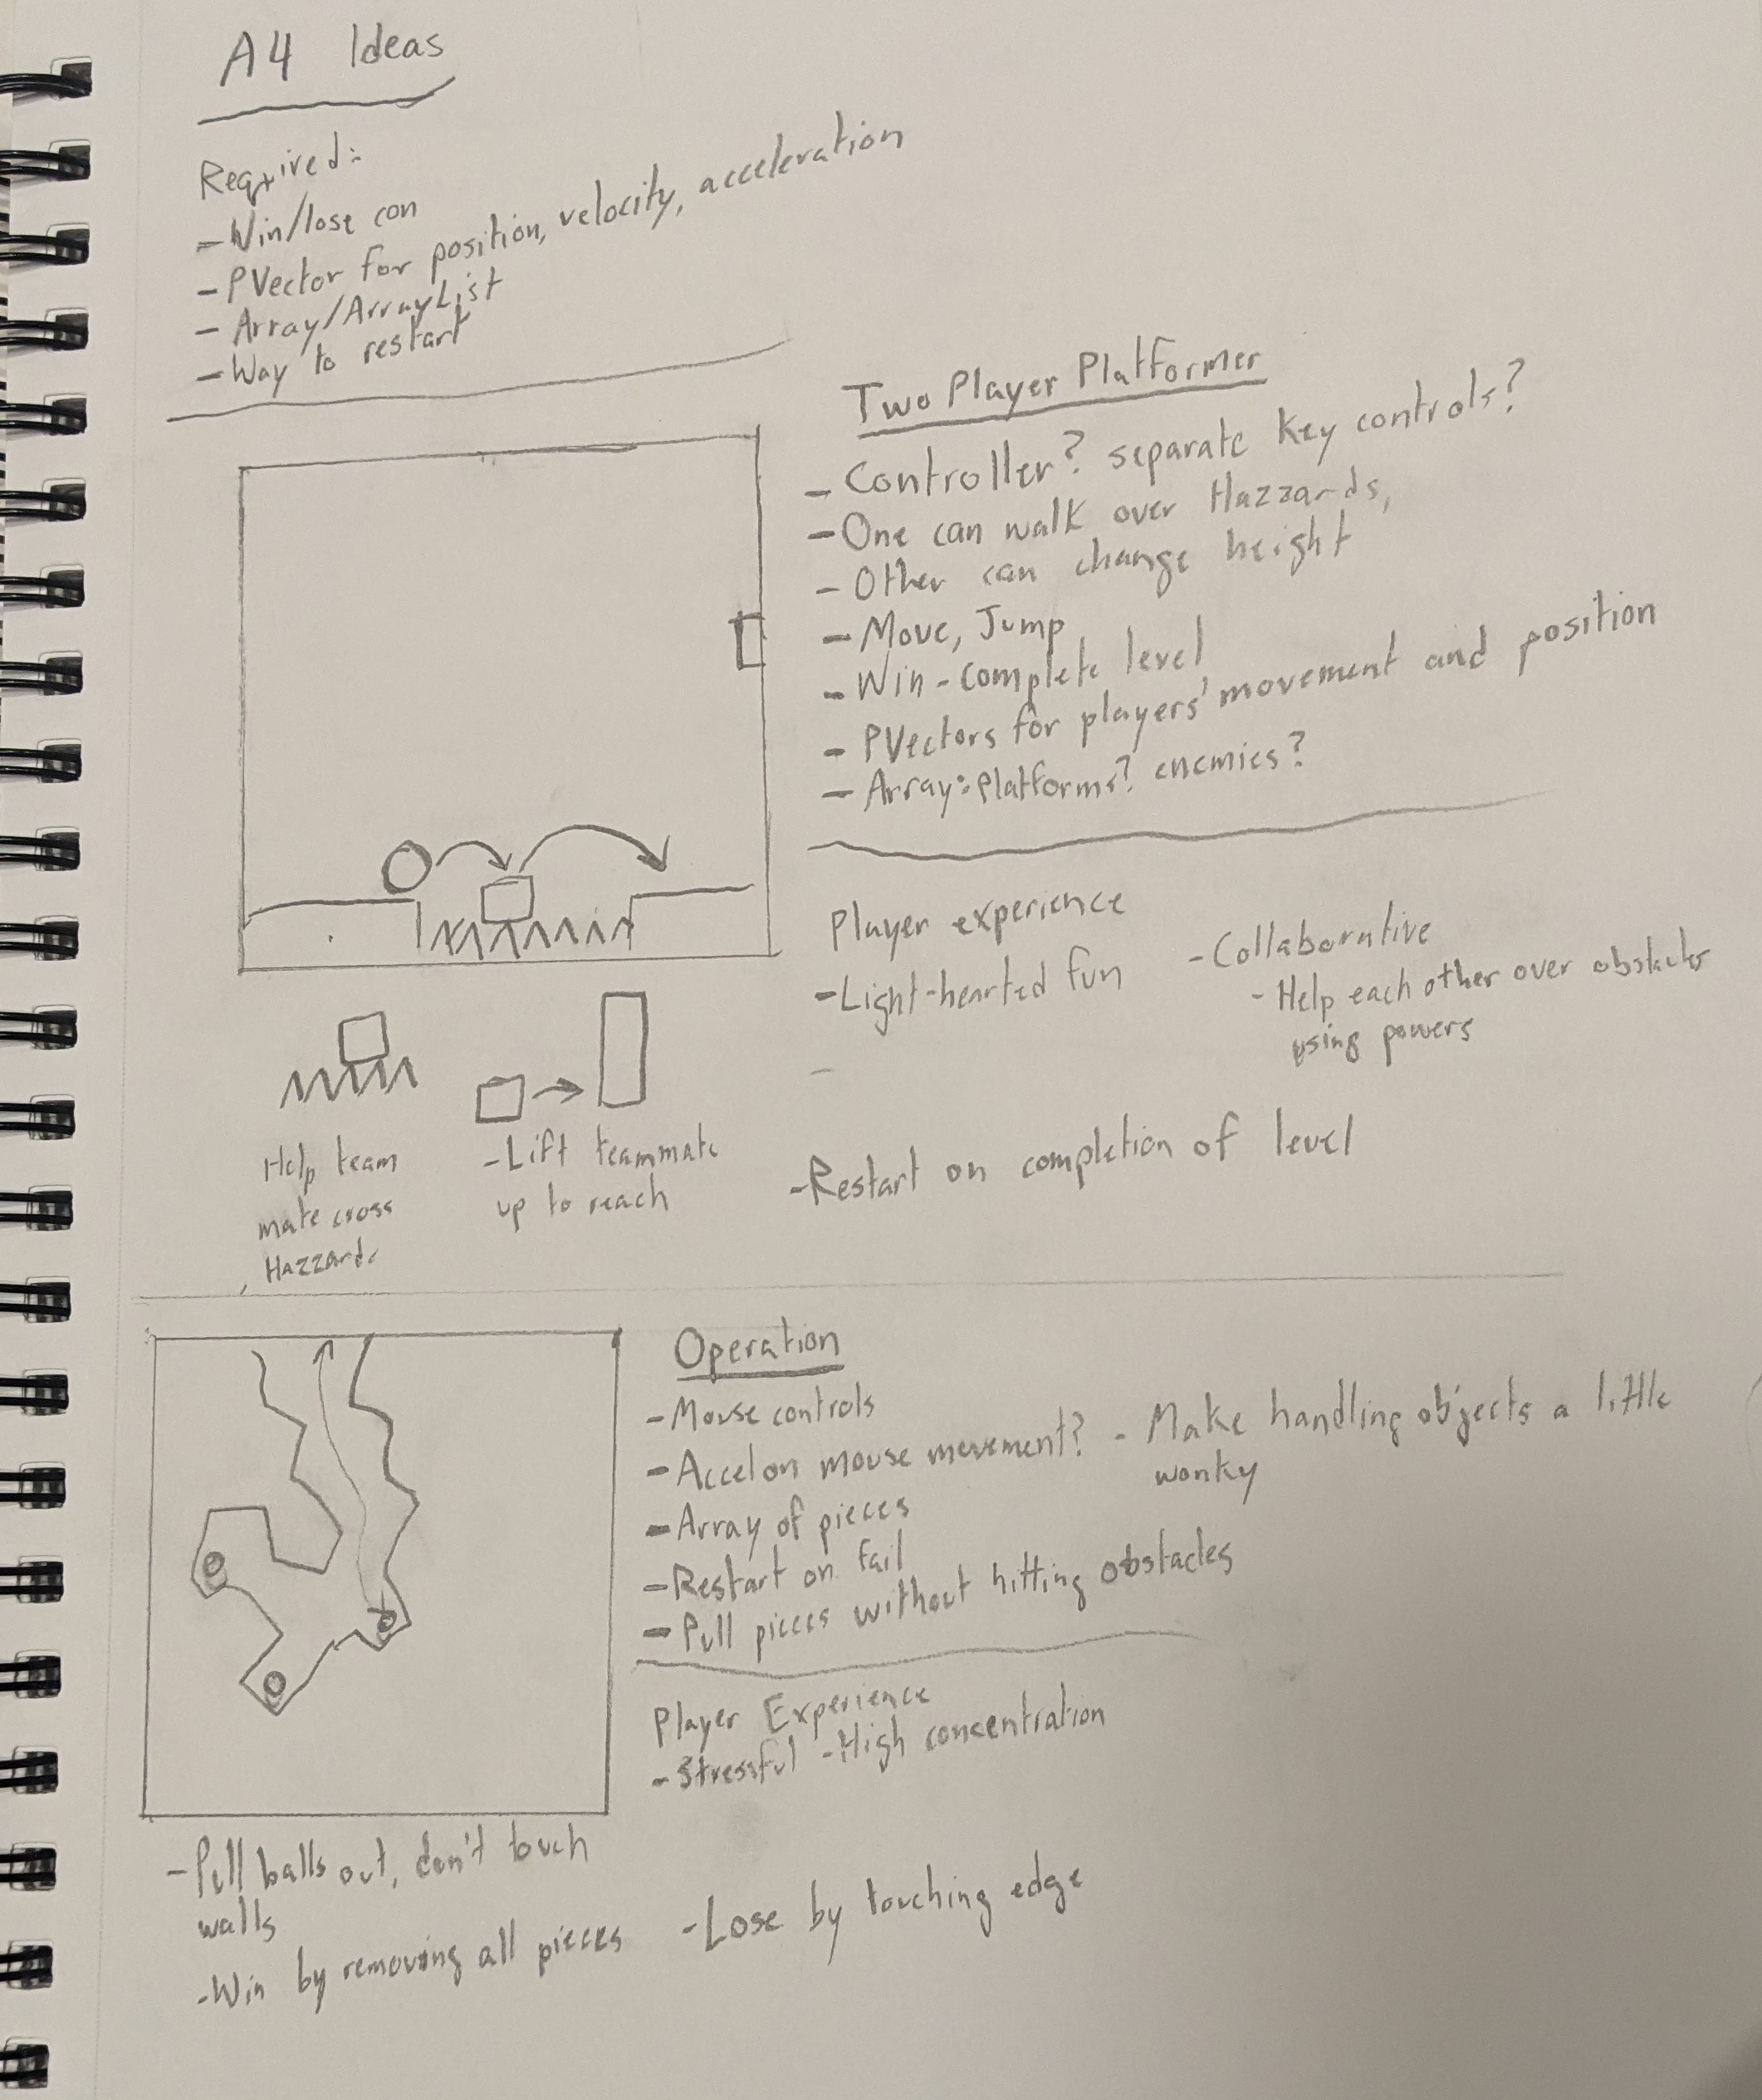 A4 Ideas
Required:
- Win/lose con
- PVector for position, velocity, acceleration
- Array/ArrayList
- Way to restart
Two Player Platformer
- Controller? separate key controls?
- One can walk over Hazzards,
- Other can change height
- Move, Jump
- Win - complete level
- PVectors for players' movement and position
- Array: Platforms? enemies?
Player experience
- Light-hearted fun
- Collaborative
- Help each other over obstacles
using powers
-
Help team
mate cross
Hazzards
- Lift teammate
up to reach
- Restart on completion of level
Operation
- Mouse controls
- Accel on mouse movement? - Make handling objects a little
wonky
- Array of pieces
- Restart on fail
- Pull pieces without hitting obstacles
Player Experience
- Stressful - High concentration
- Pull balls out, don't touch
walls
- Win by removing all pieces - Lose by touching edge